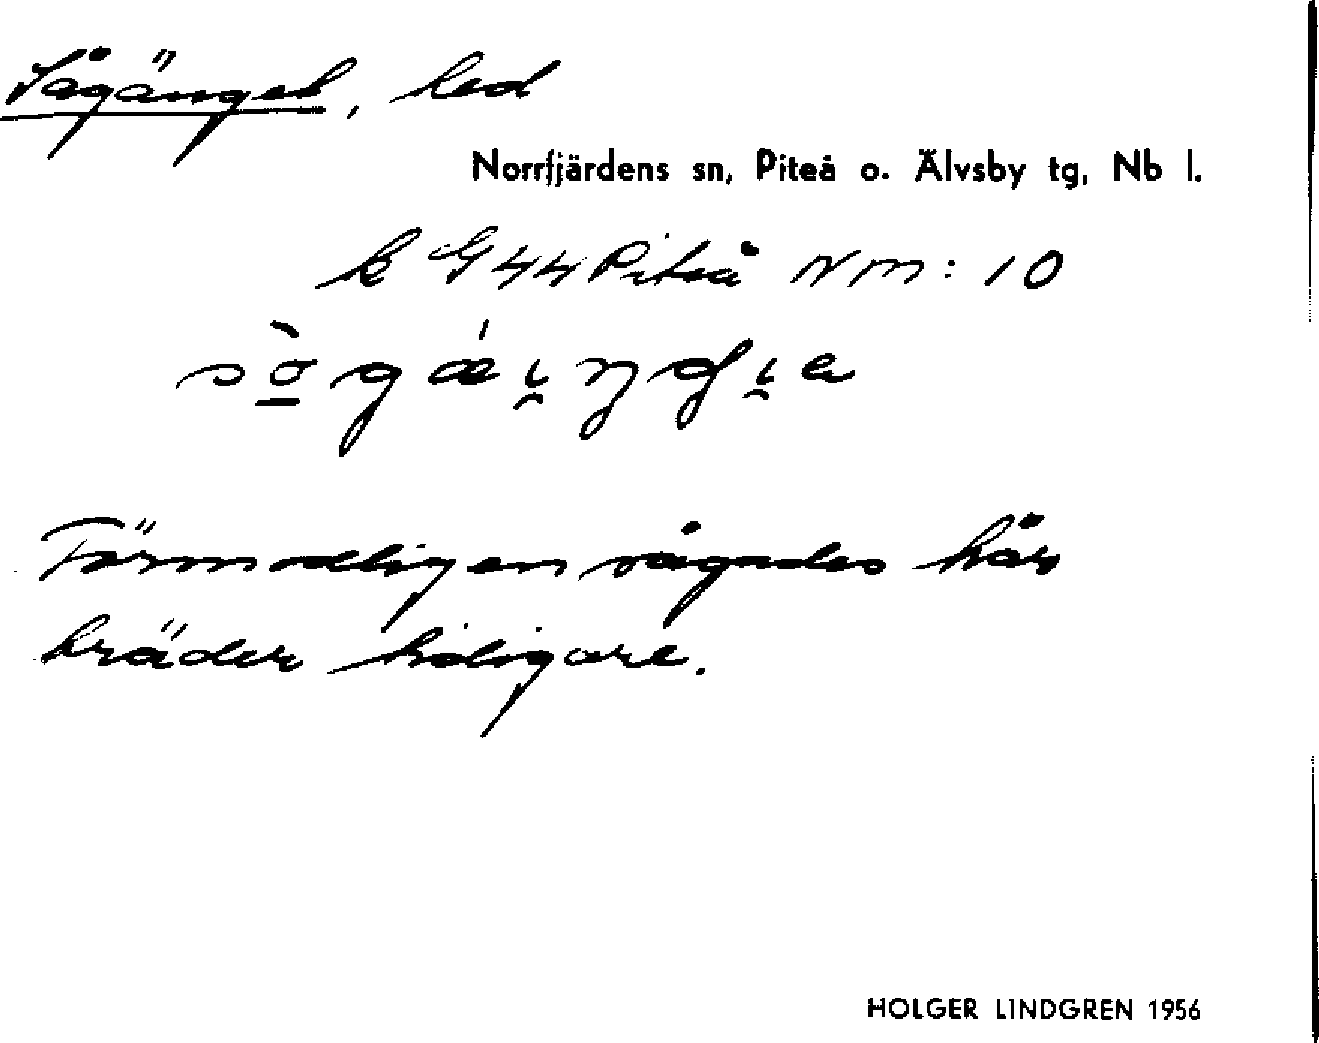 Sågänget, led
Norrfjärdens sn, Piteå o. Älvsby tg, Nb l.
k G 44 Piteå Nm: 10
Förmodligen sågades här
bräder tidigare.
HOLGER LINDGREN 1956